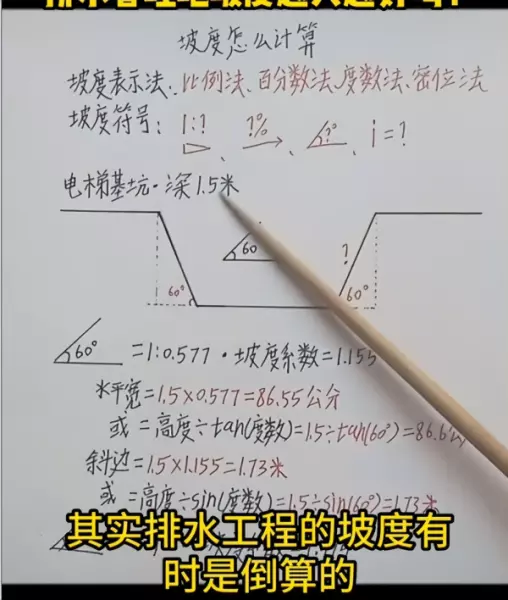 坡度怎么计算
坡度表示法、比例法、百分数法、度数法、密位法
坡度符号: 1:? ?% ?° i=?
电梯基坑·深1.5米
60
?
60° 60°
60° =1:0.577·坡度系数=1.155
水平宽=1.5×0.577=86.55公分
或=高度÷tan(度数)=1.5÷tan(60°)=86.6公
斜边=1.5×1.155=1.73米
或=高度÷sin(度数)=1.5÷sin(60°)=1.73米
其实排水工程的坡度有
时是倒算的